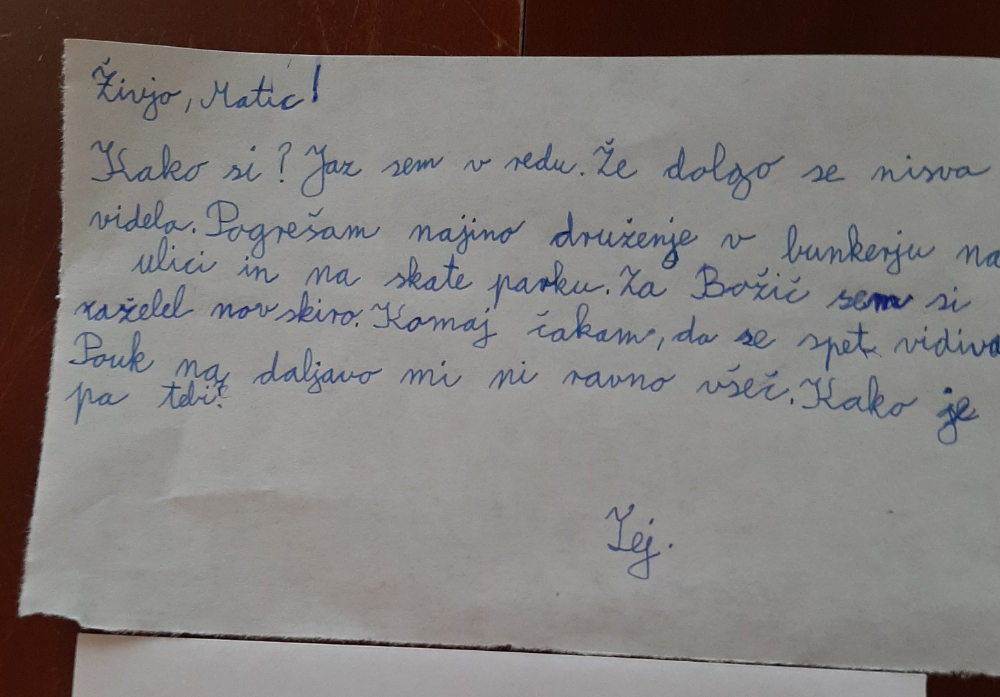 Živjo, Matic!
Kako si? Jaz sem v redu. Že dolgo se nisva
videla. Pogrešam najino druženje v bunkerju na
ulici in na skate parku. Za Božič sem si
zaželel nov skiro. Komaj čakam, da se spet vidiva
Pouk na daljavo mi ni ravno všeč. Kako je
pa tebi?
Jej.